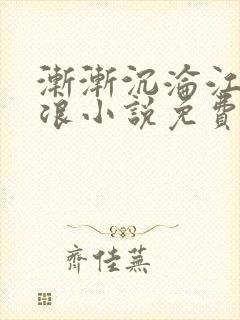 漸漸沉淪江
泿小說免費
齊佳蕪